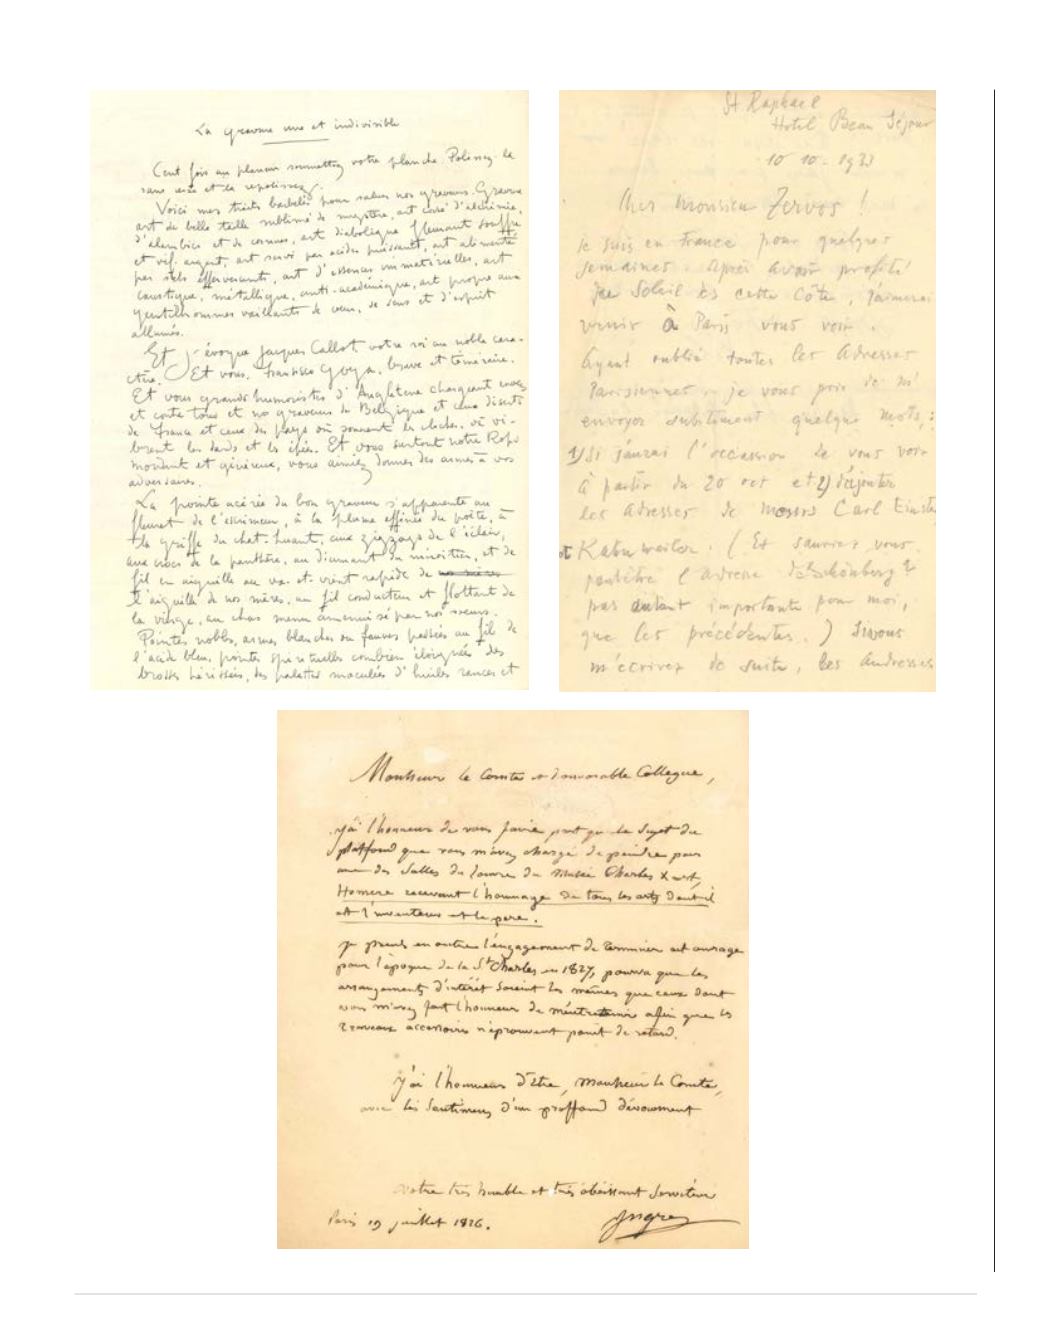 La gravure une et indivisible
Cent fois au planum soumettez votre planche. Polissez-la
sans cesse et la repolissez.
Voici mes traits barbelés pour saluer nos graveurs. Gravure
art de belle taille sublimé de mystère, art corsé d'alchimie,
d'alambics et de cornues, art diabolique fleurant souffre
et vif argent, art servi par acides puissants, art alimenté
par sels effervescents, art d'essences immatérielles, art
caustique, métallique, anti-académique, art propre aux
gentilhommes vaillants de cœur, de sens et d'esprit
allumés.
Et j'évoque Jacques Callot, votre roi au noble cara-
ctère. Et vous, Francisco Goya, brave et téméraire.
Et vous grands humoristes d'Angleterre chargeant envers
et contre tous et nos graveurs de Belgique et ceux discrets
de France et ceux des pays où sonnent les cloches, où vi-
brent les dards et les épées. Et vous surtout notre Rops
mordant et généreux, vous aimiez donner des armes à vos
adversaires.
La pointe acérée du bon graveur s'apparente au
fleuret de l'escrimeur, à la plume effilée du poète, à
la griffe du chat-huant, aux zigzags de l'éclair,
aux crocs de la panthère, au diamant du miroitier, et de
fil en aiguille au va-et-vient rapide de
l'aiguille de nos mères, au fil conducteur et flottant de
la vierge, au chas menu amenuisé par nos sœurs.
Pointes nobles, armes blanches ou fauves passées au fil de
l'acide bleu, pointes spirituelles combien éloignées des
brosses hérissées, des palettes maculées d'huiles rances et
St Raphael
Hotel Beau Séjour
10 10 - 1933
Cher Monsieur Zervos !
Je suis en France pour quelques
semaines. Après avoir profité
du Soleil de cette Côte, j'aimerai
venir à Paris vous voir.
Ayant oublié toutes les Adresses
Parisiennes, je vous prie de m'
envoyer subitement quelques mots, :
1) Si j'aurai l'occassion de vous voir
à partir du 20 oct et 2) d'ajouter
les adresses de Carl Einstein
et Kahnweiler. (Et sauriez vous
peutêtre l'adresse de Schönberg ?
pas autant importante pour moi,
que les précédentes.) Si vous
m'écrivez de suite, les
Monsieur le Comte et honorable Collegue,
j'ai l'honneur de vous faire part que le Sujet du
plaffond que vous m'avez chargé de peindre pour
une des Salles du Louvre du Musée Charles X est,
Homere recevant l'hommage de tous les arts dont il
est l'inventeur et le pere.
je prends en outre l'engagement de terminer cet ouvrage
pour l'époque de la St Charles en 1827, pourvu que les
arrangements d'intérêt soient les mêmes que ceux dont
vous m'avez fait l'honneur de m'entretenir afin que les
travaux accessoires n'éprouvent point de retard.
j'ai l'honneur d'être, Monsieur le Comte,
avec les Sentimens d'un proffond dévouement
votre très humble et très obéissant Serviteur
Paris 19 juillet 1826.
Ingres